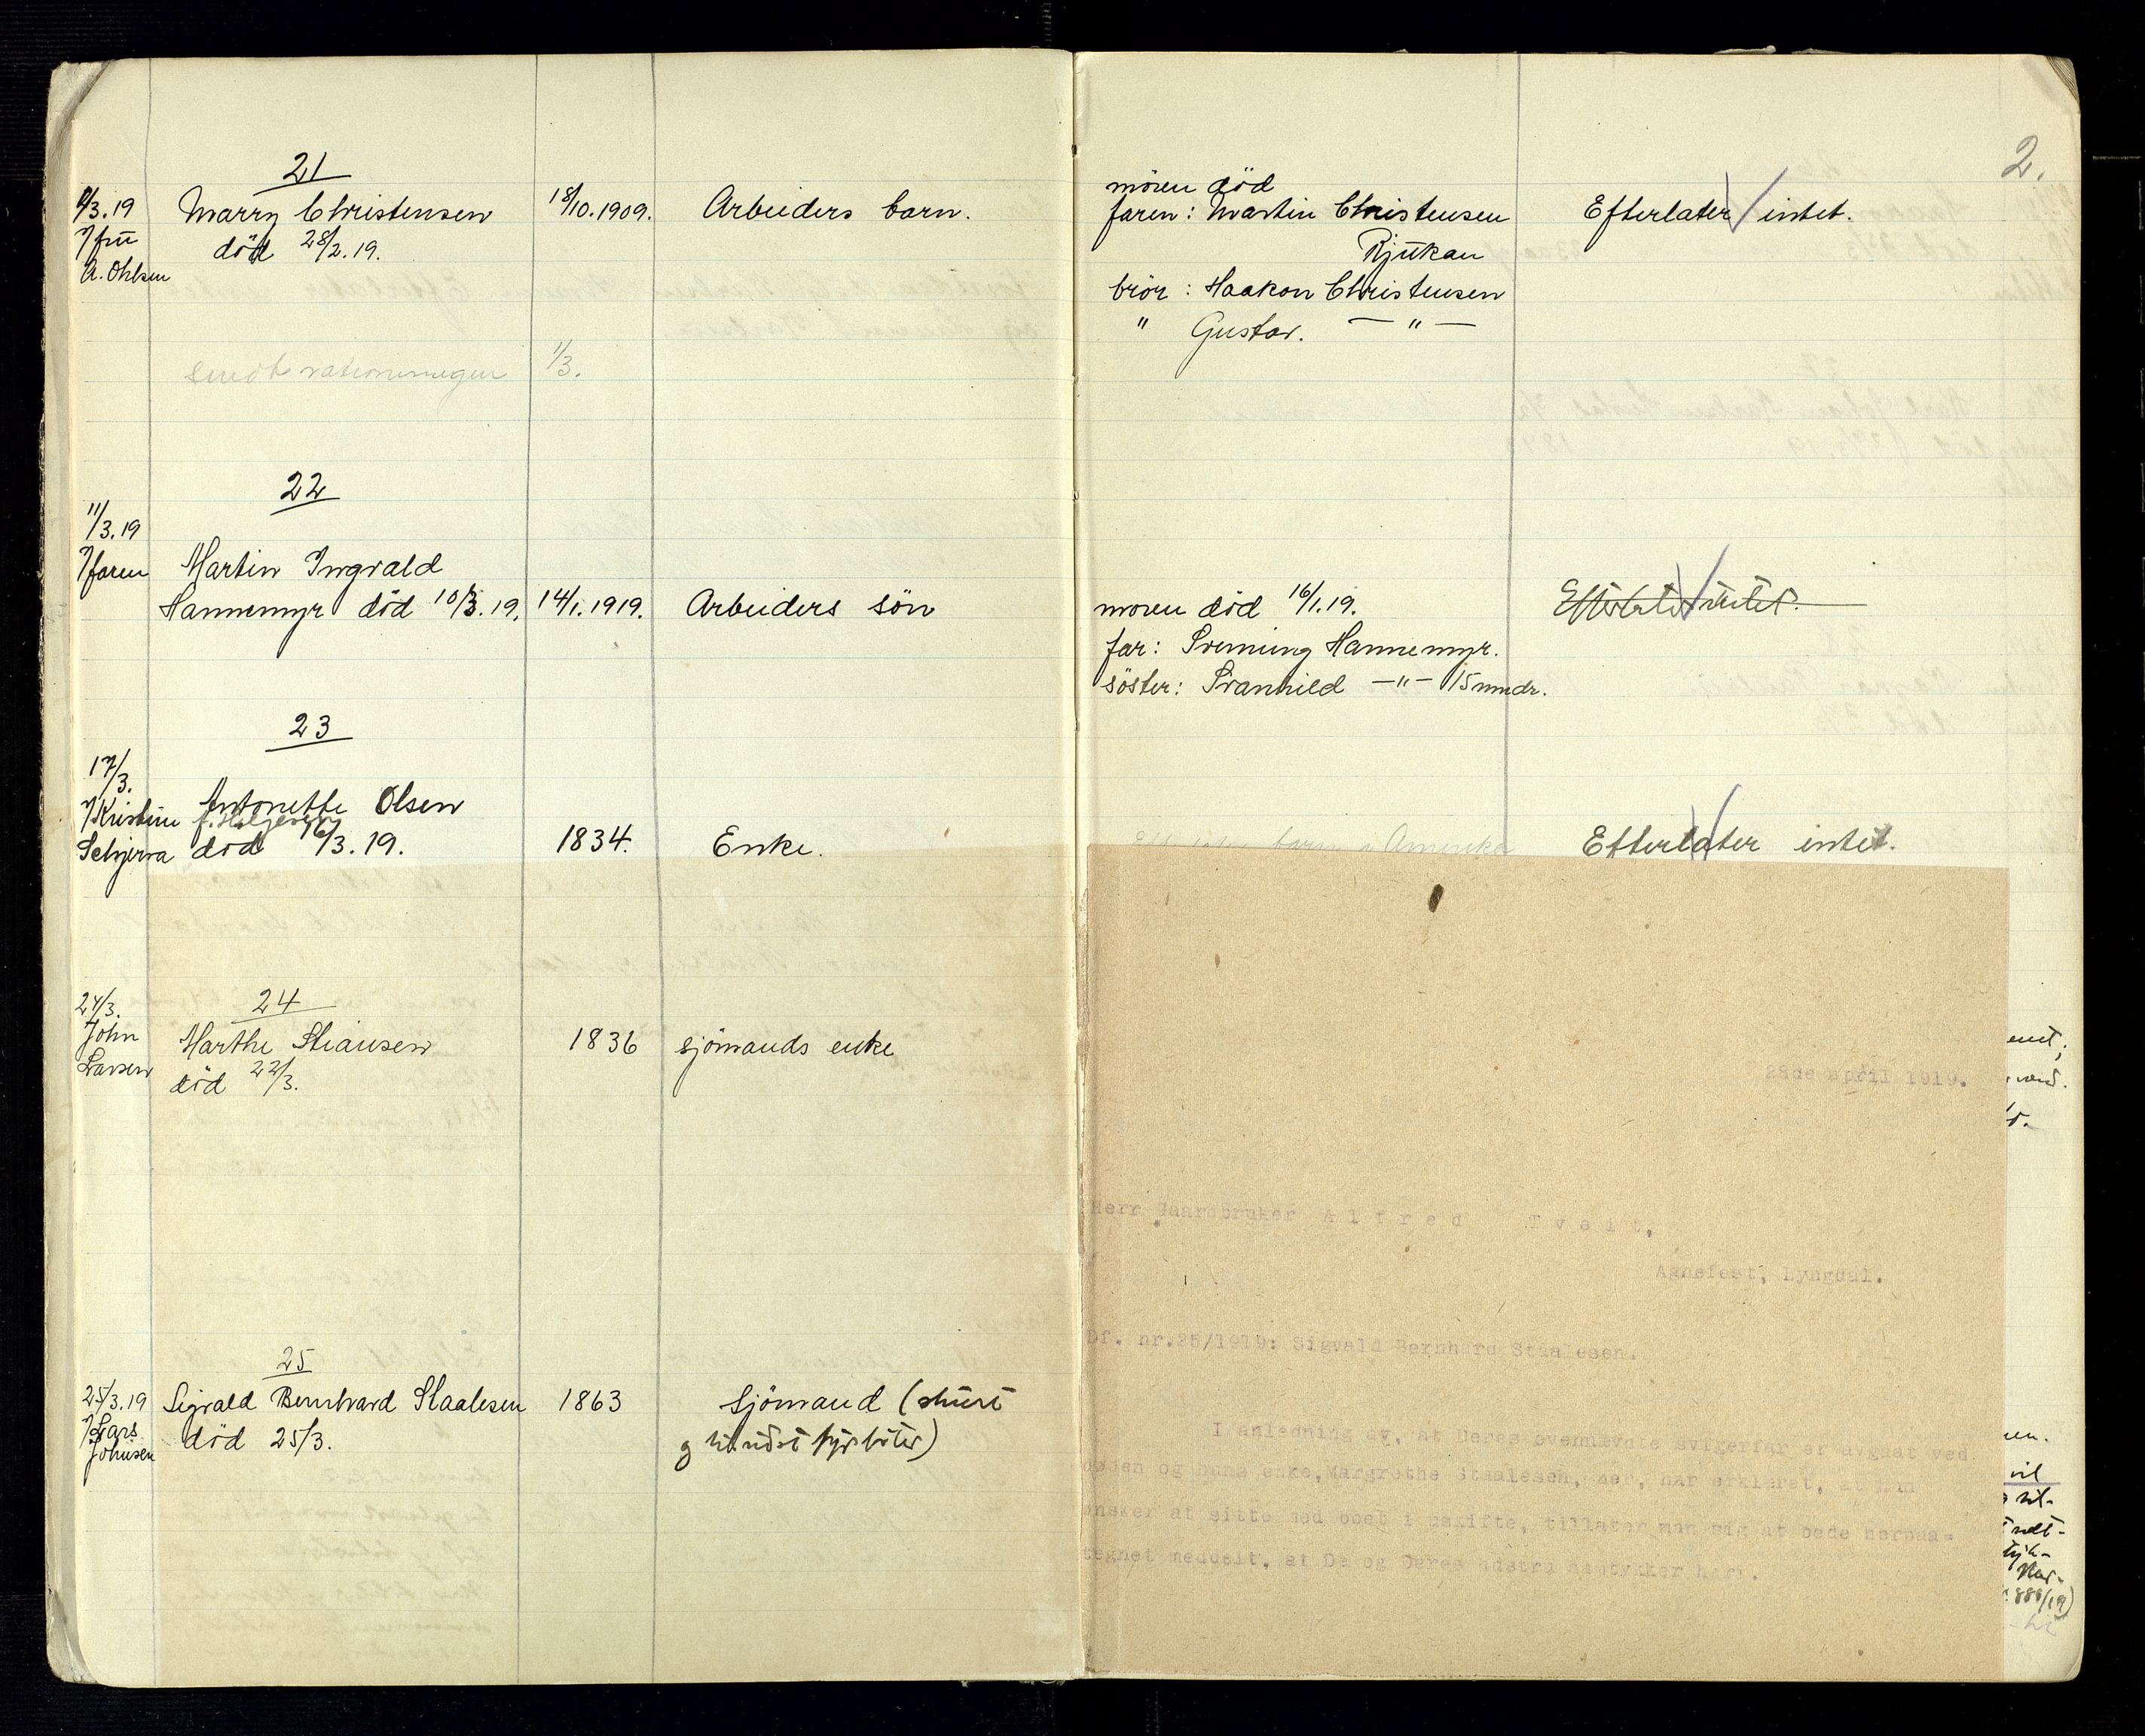 2.
21
1/3.19
v/ fru
A. Ohlsen
Marry Christensen
død 28/2.19.
18/10.1909.
Arbeiders barn.
moren død
faren: Martin Christensen
Rjukan
bror: Haakon Christensen
" Gustav. — " —
Efterlater intet.
sendt 1/3.
22
11/3.19
v/ faren
Martin Ingvald
Hannemyr død 10/3.19.
14/1.1919.
Arbeiders søn
moren død 16/1.19.
far: Svenning Hannemyr.
søster: Svanhild —"— 15 mndr.
Efterlater intet.
23
17/3.
v/ Kristine
Antonette Olsen
f. Helgesen
død 16/3.19.
1834.
Enke.
barn i Amerika
Efterlater intet.
24
24/3.
John
Larsen
Marthe Stiansen
død 22/3.
1836
sjømands enke
25
25/3.19
v/ Lars
Johnsen
Sigvald Bernhard Staalesen
død 25/3.
1863
Sjømand (
28de april 1919.
Herr Gaardbruker Alfred Tveit,
Agnefest, Lyngdal.
Df. nr.25/1919: Sigvald Bernhard Staalesen.
I anledning av, at Deres ovennævnte svigerfar er avgaat ved
døden og hans enke, Margrethe Staalesen, her, har erklæret, at hun
ønsker at sitte med boet i uskifte, tillater man sig at bede herpaa-
tegnet meddelt, at De og Deres hustru samtykker heri.
vil